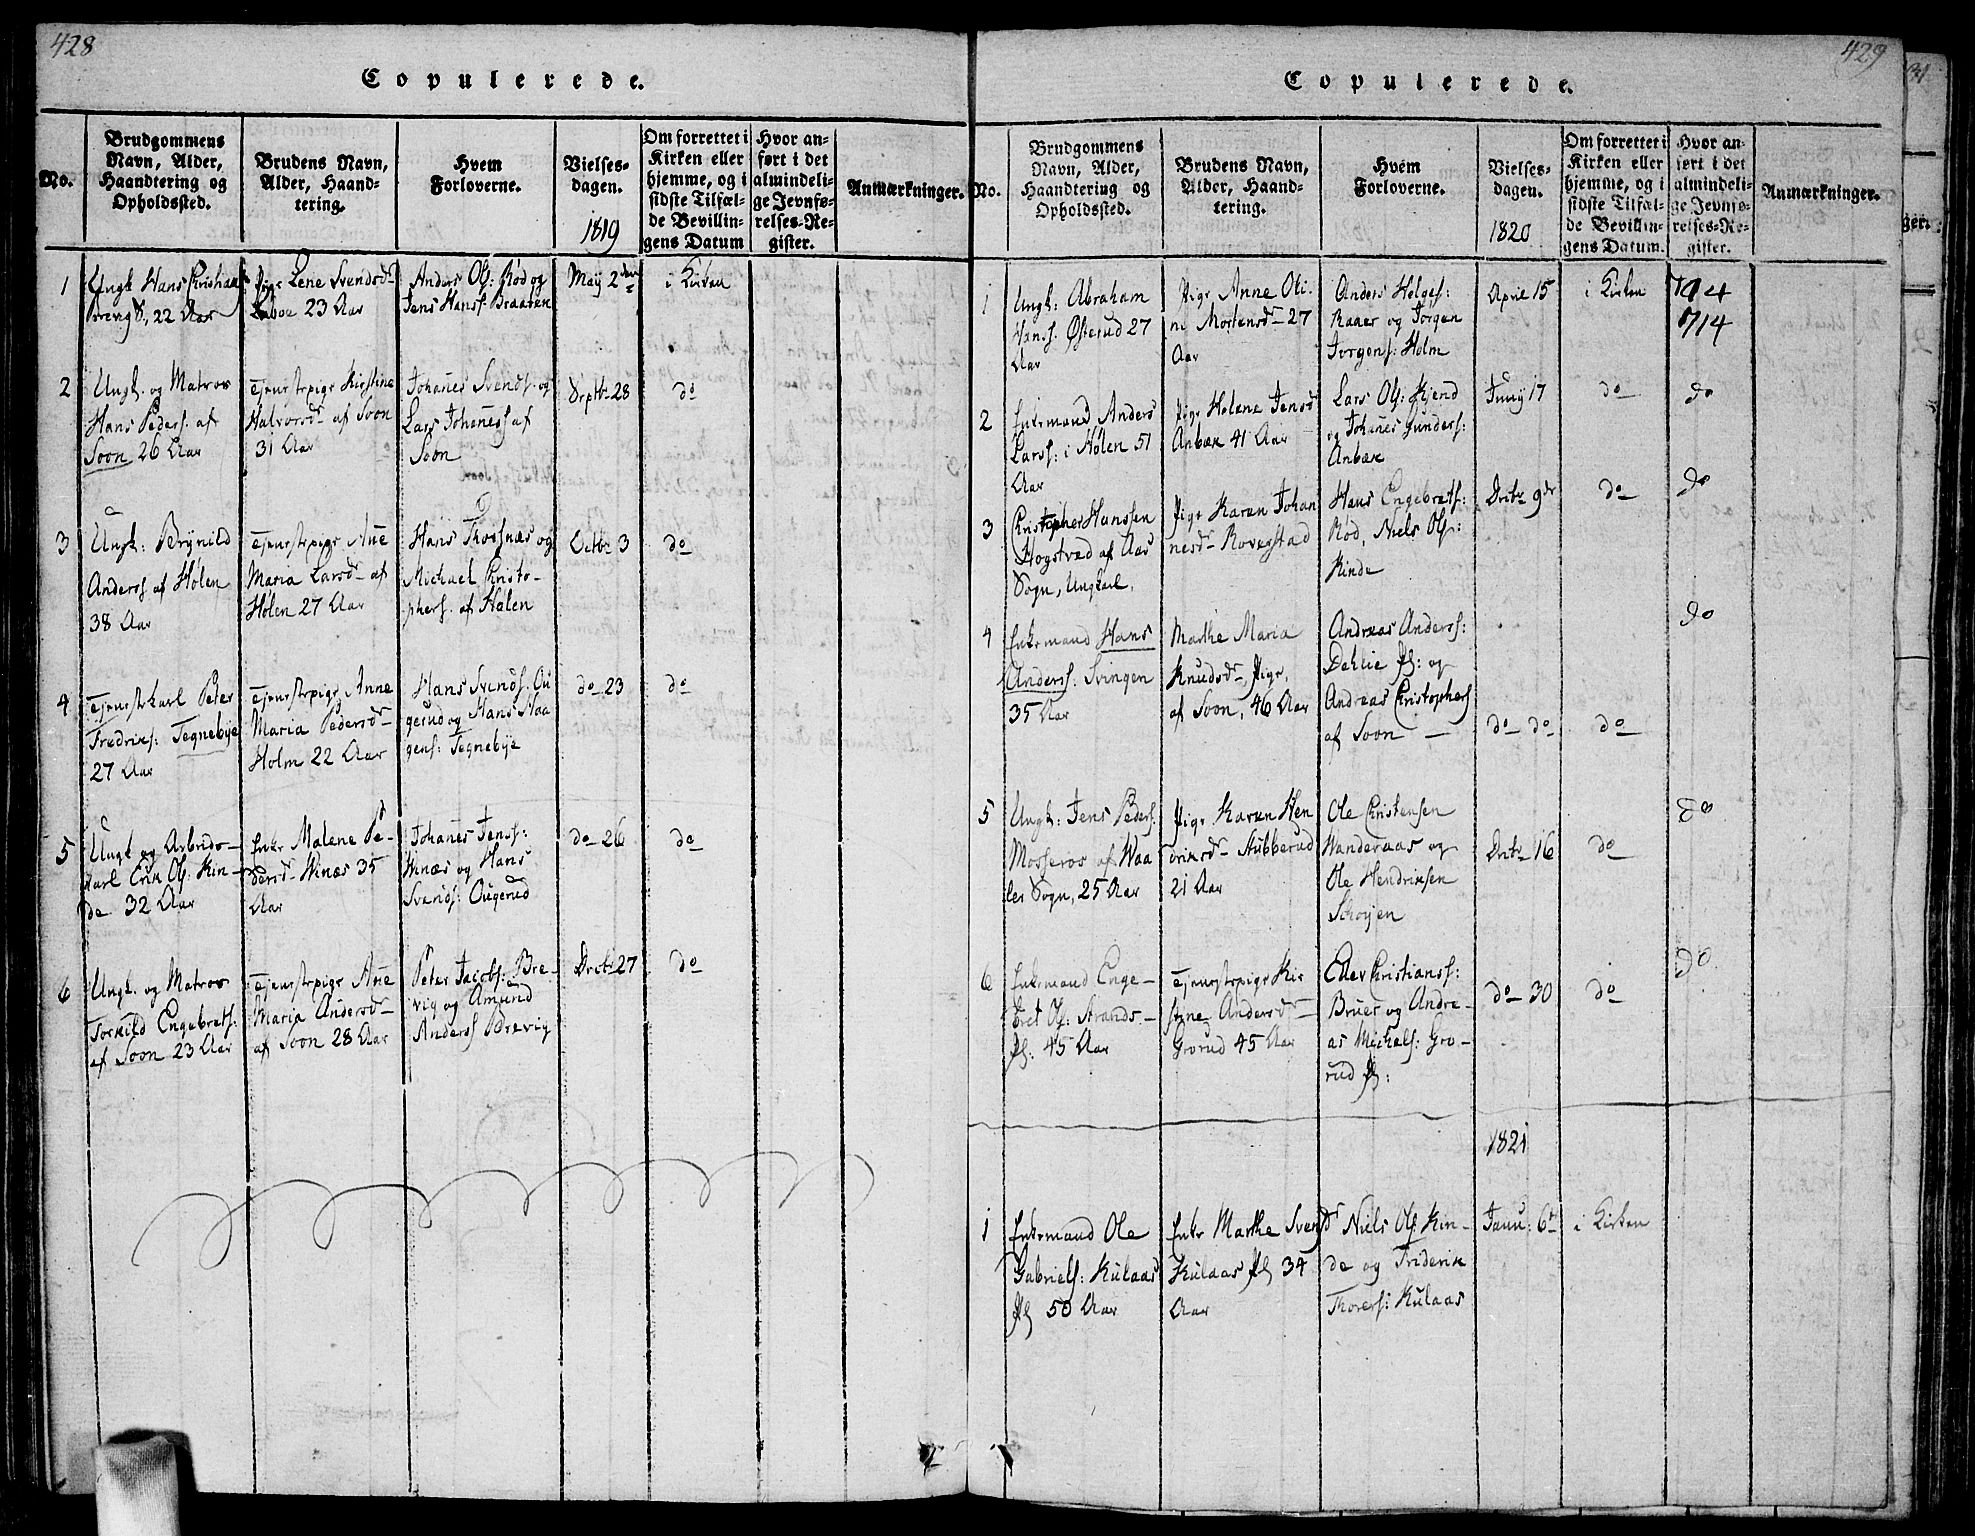 428
Copulerede.
No.
Brudgommens
Navn, Alder,
Haandtering og
Opholdssted.
Brudens Navn,
Alder, Haand-
tering.
Hvem
Forloverne.
Vielses-
dagen.
1819
Om forrettet i
Kirken eller
hjemme, og i
sidste Tilfæl-
de Bevillin-
gens Datum
Hvor an-
ført i det
almindeli-
ge Jevnfø-
relses-Re-
gister.
Anmærkninger.
1
Ungk Hans Christian
22 Aar
Pige Lene Svendsd
Laboe 23 Aar
Anders Ols: Rød og
Jens Hans: Braaten
May 2den
i Kirken
2
Ungk. og Matros
Hans Peders. af
Soon 26 Aar
Tjenestepige Kirstine
Halvorsd af Soon
31 Aar
Johanes Svends. og
Lars Johaness af
Soon
Septbr 28
do
3
Ungk: Brynild
Anders af Hølen
38 Aar
Tjenestepige Ane
Maria Larsd af
Hølen 27 Aar
Hans Thosnæs og
Michael Christo-
phers. af Hølen
Octbr 3
do
4
Tjenestekarl Peter
Fredriks: Tegnebye
27 Aar
Tjenestepige Anne
Maria Pedersd
Holm 22 Aar
Hans Svends. Ou
gerud og Hans Haa
gens: Tegnebye
do 23
do
5
Ungk og Arbeids-
karl Erik Ols: Kin-
de 32 Aar
Enke Malene Pe-
dersd Winæs 35
Aar
Johanes Jenss:
Winæs og Hans
Svends: Ougerud
do 26
do
6
Ungk. og Matros
Torkild Engebrets:
af Soon 23 Aar
Tjenestepige Ane
Maria Andersd
af Soon 28 Aar
Peter Jacobs: Bre-
vig og Amund
Anders Brevig
Decbr 27
do
429
Copulerede.
No.
Brudgommens
Navn, Alder,
Haandtering og
Opholdssted.
Brudens Navn,
Alder, Haand-
tering.
Hvem
Forloverne.
Vielses-
dagen.
1820
Om forrettet i
Kirken eller
hjemme, og i
sidste Tilfæl-
de Bevillin-
gens Datum.
Hvor an-
ført i det
almindeli-
ge Jevnfø-
relses-Re-
gister.
Anmærkninger.
1
Ungk: Abraham
Hanss. Østerud 27
Aar
Pige Anne Oli-
ne Mortensd 27
Aar
Anders Helges:
Raaer og Jørgen
Jørgens: Holm
April 15
i Kirken
714
2
Enkemand Anders
Larss: i Hølen 51
Aar
Pige Helene Jensd
Anbæk 41 Aar
Lars Ols: Kjend
og Johanes Gunders:
Anbæk
Juny 17
do
do
3
Christopher Hanssen
Hogstved af Aas
Sogn, Ungkarl.
Pige Karen Johan
nesd Roverstad
Hans Engebrets:
Rød, Niels Ols:
Kinde
Decbr 9de
do
do
4
Enkemand Hans
Anderss: Svingen
35 Aar
Marthe Maria
Knudsd Pige,
af Soon, 46 Aar
Andreas Anders:
Dehlie Pl: og
Andreas Christophers
af Soon —
do do
do
do
5
Ungk: Jens Peders.
Mosseros af Waa
ler Sogn, 25 Aar
Pige Karen Hen
driksd Stubberud
21 Aar
Ole Christensen
Wanderaas og
Ole Hendriksen
Schoyen
Decbr 16
do
do
6
Enkemand Enge-
bret Ols: Strands-
Pl: 45 Aar
Tjenestepige Kir
stine Andersd
Grorud 45 Aar
Elev Christianss:
Bruer og Andre-
as Michels: Gro-
rud Pl:
do 30
do
do
1821
1
Enkemand Ole
Gabriels: Kulaas
Pl 50 Aar
Enke Marthe Svend
Kulaas Pl 34
Aar
Niels Ols: Kin-
de og Friderik
Thorers: Kulaas
Janu: 6te
i Kirken